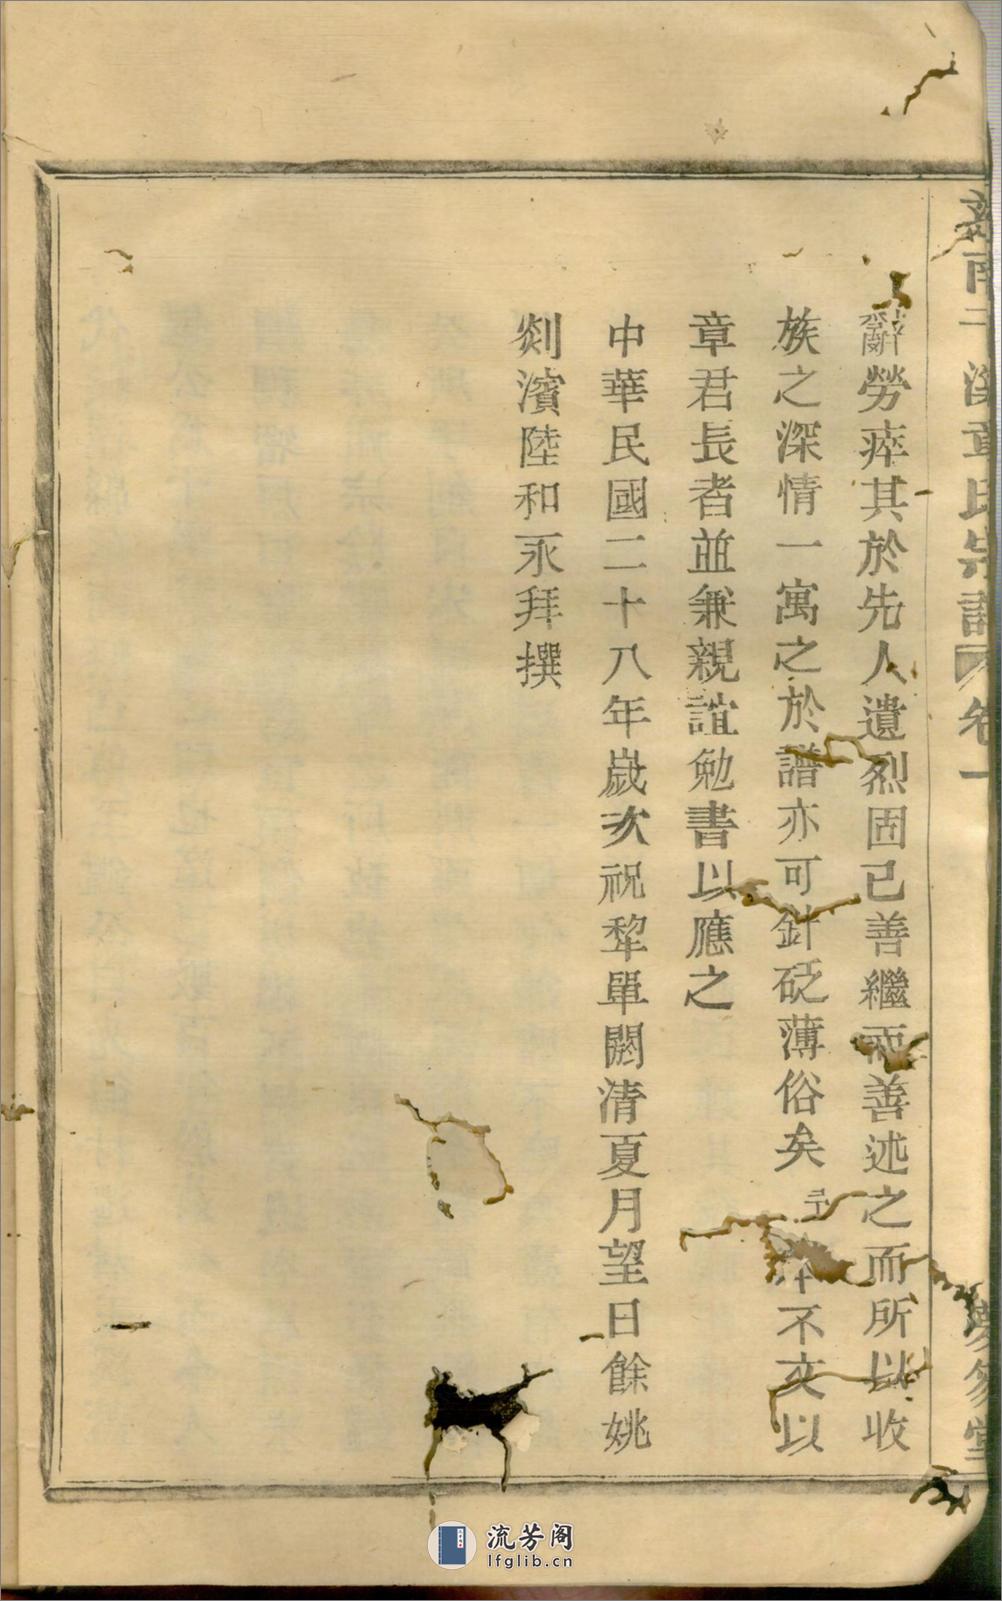 章氏宗譜 卷一
辭勞瘁其於先人遺烈固已善繼而善述之而所以收
族之深情一寓之於譜亦可針砭薄俗矣 不文以
章君長者並兼親誼勉書以應之
中華民國二十八年歲次祝犂單閼清夏月望日餘姚
剡濱陸和永拜撰
流芳阁
lfglib.cn